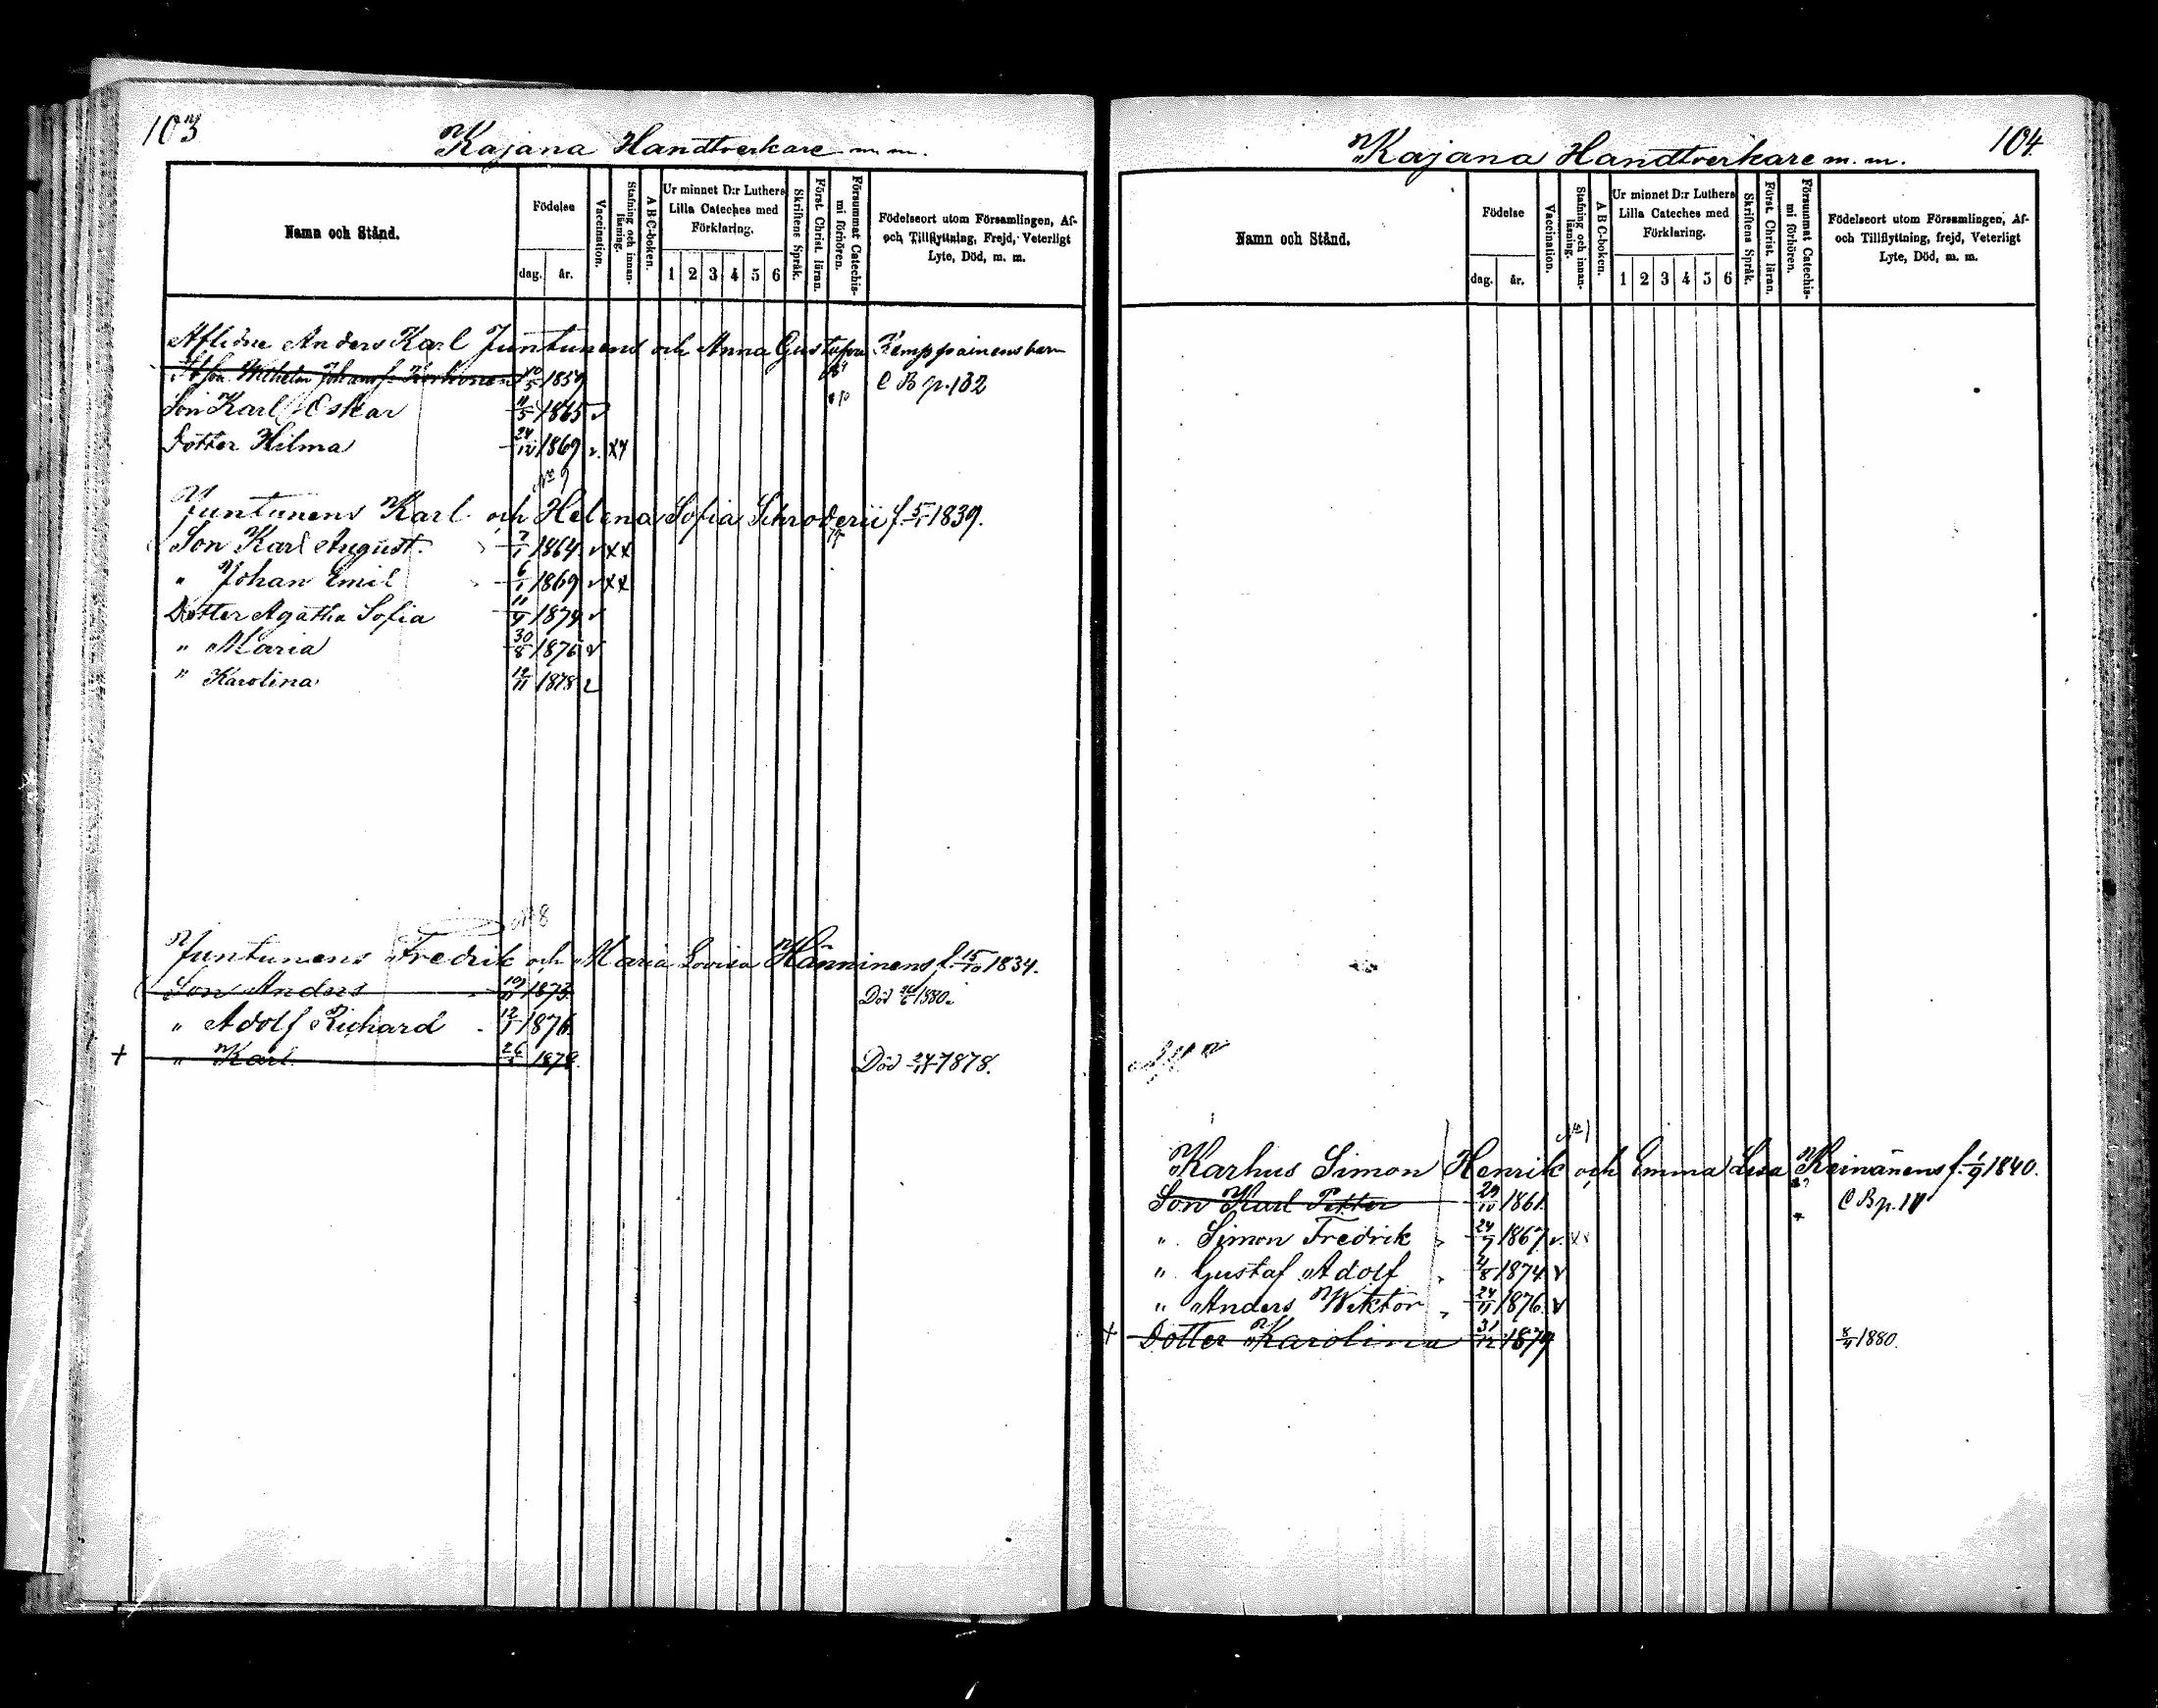 103
Kajana Handtverkare m. m.
Namn och Stånd.
Födelse
dag.
år.
Vaccination.
Stafning och innan-läsning.
A B C-boken.
Ur minnet D:r Luthers
Lilla Cateches med
Förklaring.
1 2 3 4 5 6
Skriftens Språk.
Först. Christ. läran.
Försummat Catechis-mi förhören.
Födelseort utom Församlingen, Af-
och Tillflyttning, Frejd, Veterligt
Lyte, Död, m. m.
Aflidne Anders Karl Juntunens och Anna Gustafva Kemppainens barn
Wilhelm Johansf. Korhonen 1859 C B p. 132
Son Karl Oskar 11/5 1865 v
Dotter Hilma 24/12 1869 v. xx
N:o 9
Juntunens Karl och Helena Sofia Schroderii f. 5/1 1839.
Son Karl August. 7/1 1864. v xx
" Johan Emil 6/1 1869 v xx
Dotter Agatha Sofia 11/9 1874 v
" Maria 30/8 1876 v
" Karolina 12/11 1878 v
N:o 8
Juntunens Fredrik och Maria Lovisa Hänninens f. 15/10 1834.
Son Anders 1873. Död 1880.
" Adolf Richard 12/1 1876.
+ " Karl 1878. Död 24/11 1878.
104.
Kajana Handtverkare m. m.
Namn och Stånd.
Födelse
dag.
år.
Vaccination.
Stafning och innan-läsning.
A B C-boken.
Ur minnet D:r Luthers
Lilla Cateches med
Förklaring.
1 2 3 4 5 6
Skriftens Språk.
Först. Christ. läran.
Försummat Catechis-mi förhören.
Födelseort utom Församlingen, Af-
och Tillflyttning, frejd, Veterligt
Lyte, Död, m. m.
Karhus Simon Henrik och Emma Lisa Keinänens f. 1/9 1840.
Son Karl Petter 29/10 1861. C B p.
" Simon Fredrik 24/7 1867 v. xx
" Gustaf Adolf 4/8 1874 v
" Anders Wiktor 24/11 1876. v
+ Dotter Karolina 31/12 1879 1880.